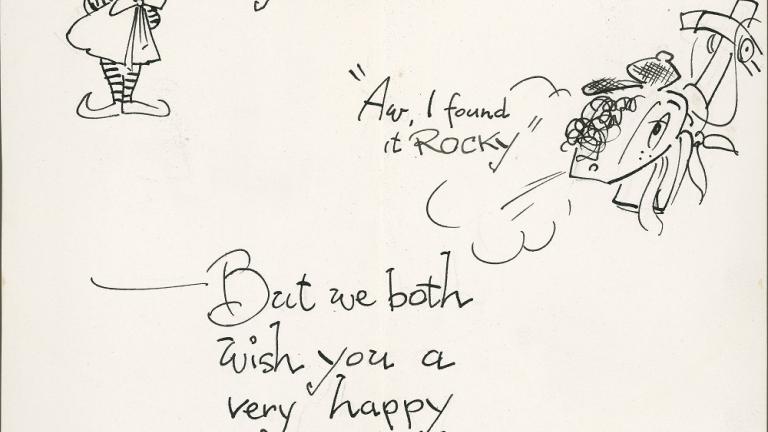 "Aw, I found
it ROCKY"
— But we both
wish you a
very happy